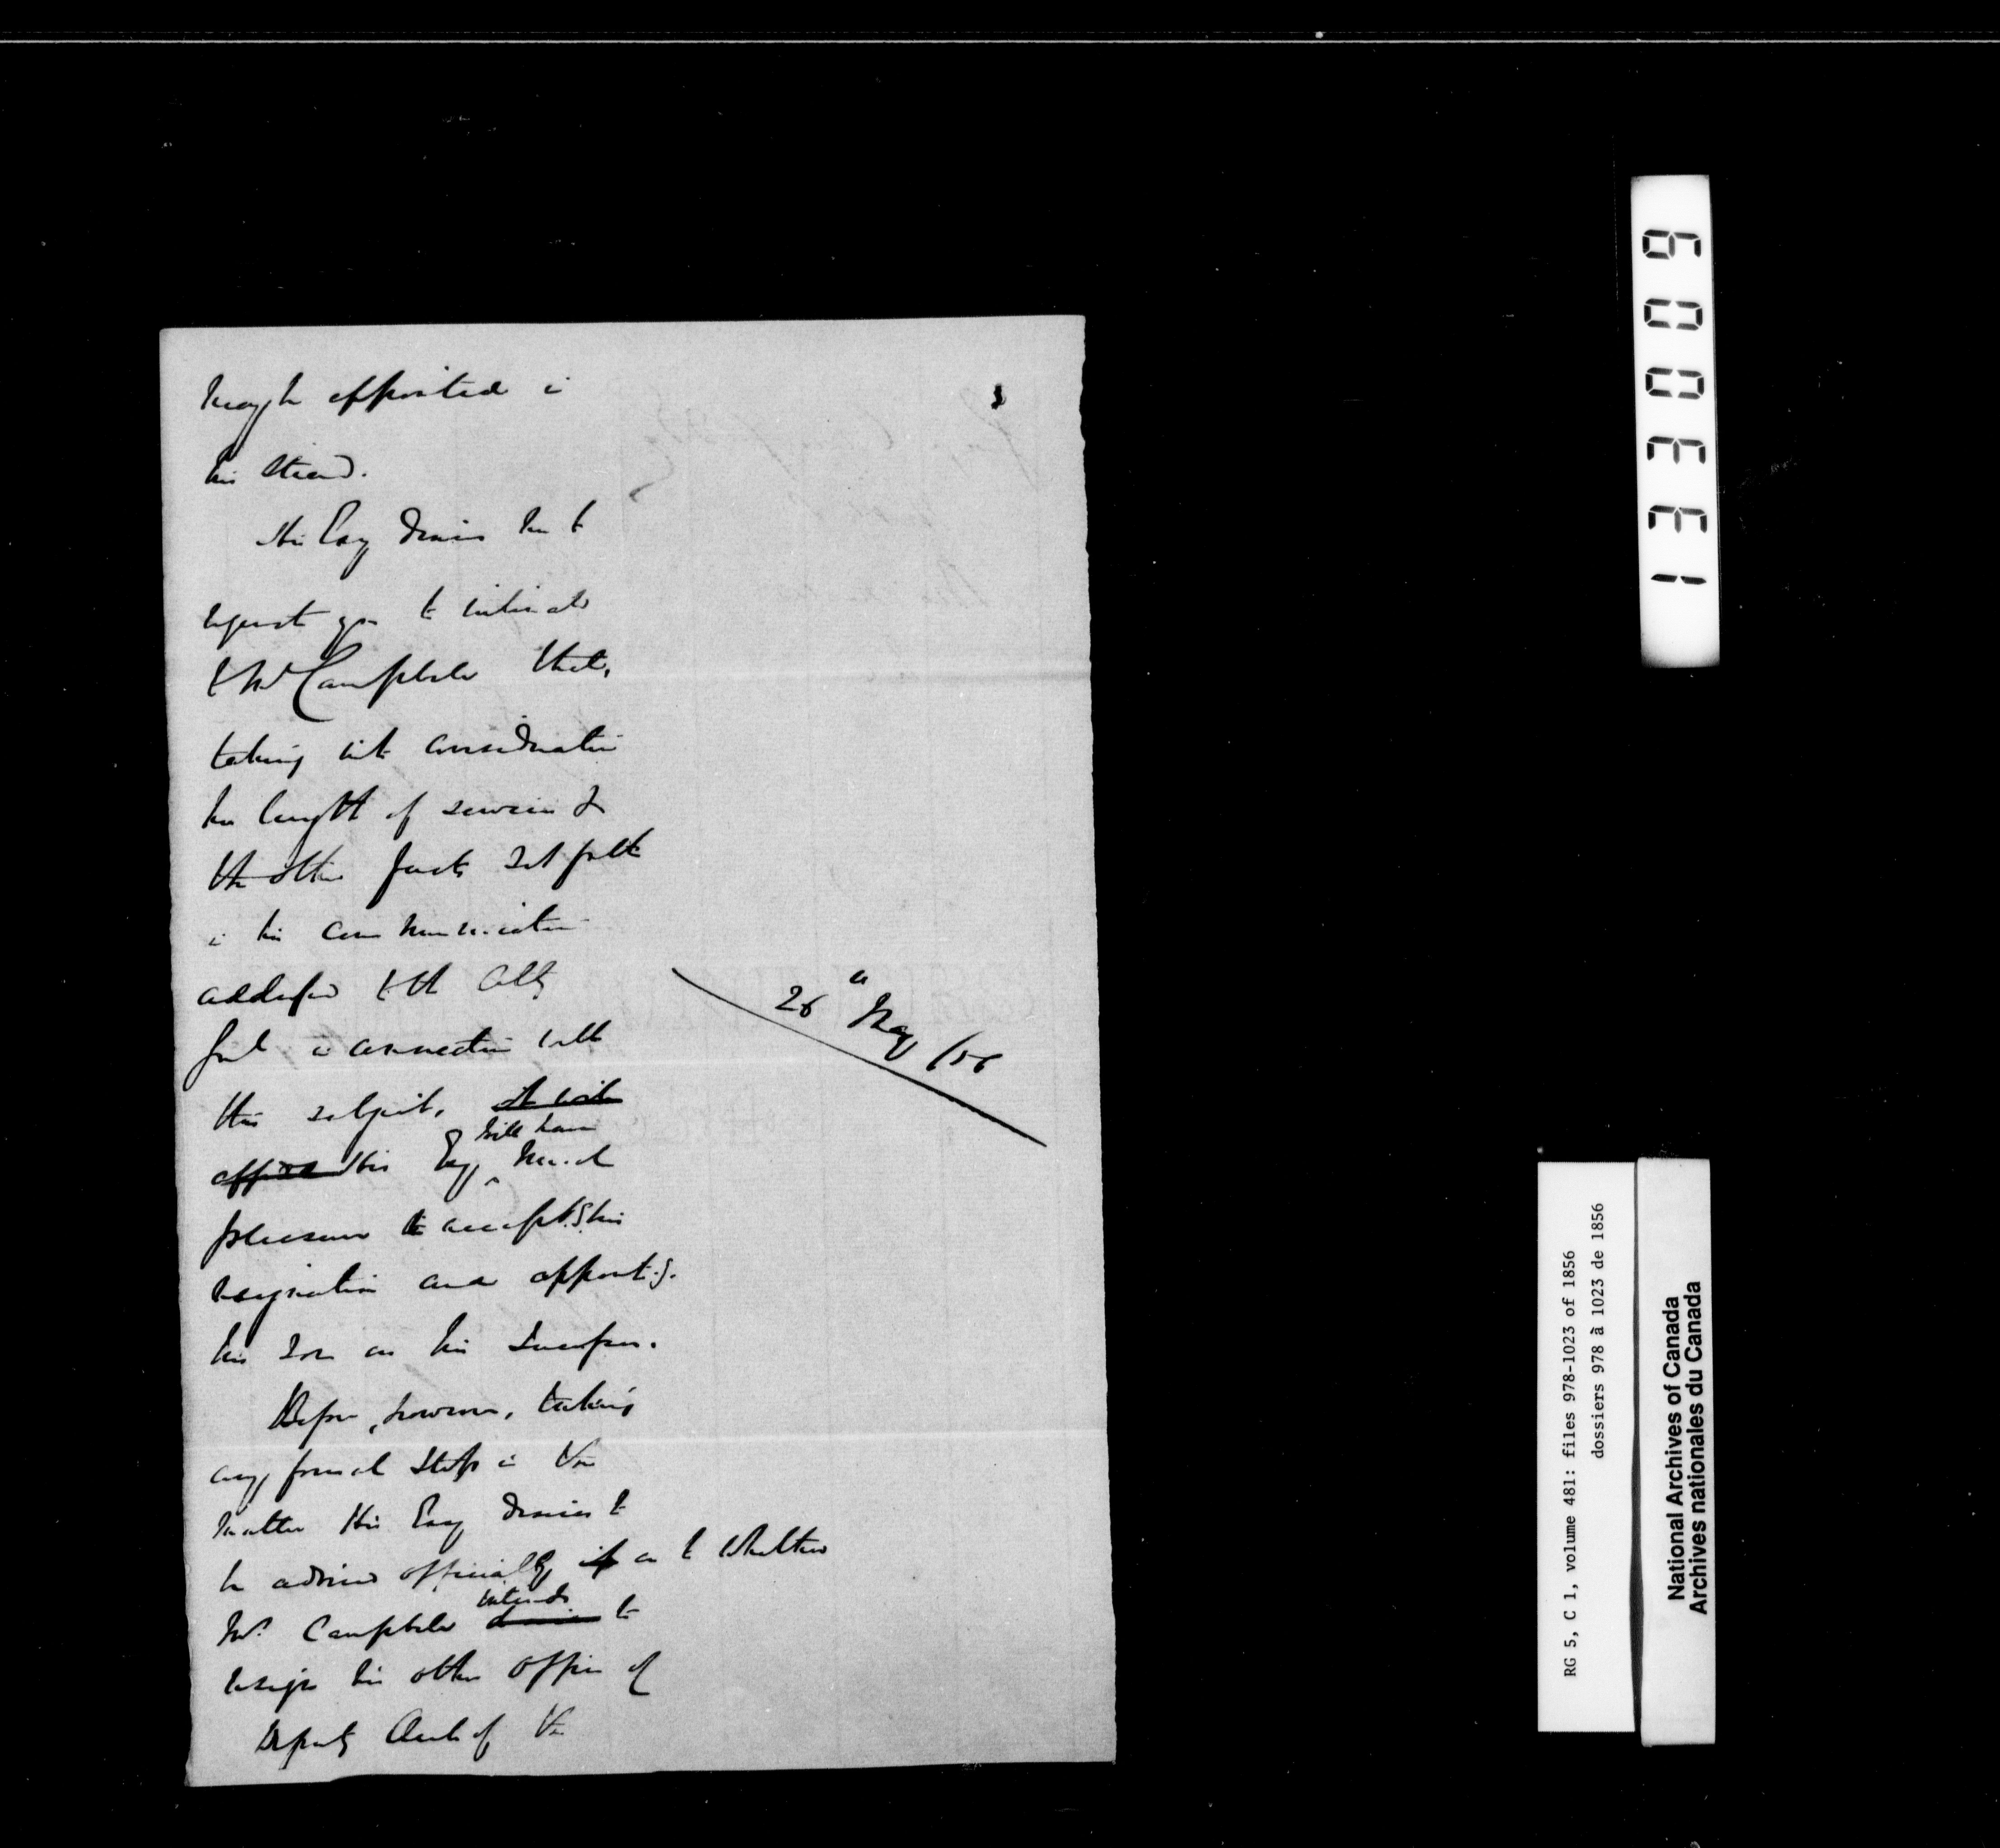 may be appointed in
his stead.
His Excy desires me to
request you to intimate
to Mr Campbell that,
taking into consideration
his length of service &
the other facts set forth
in his communication
addressed to the Atty
Genl in connection with
this subject, it will
afford His Excy will have much
pleasure to accept.g his
resignation and appoint.g.
his son as his Successor.
Before, however, taking
any formal steps in the
matter His Excy desires to
be advised officially if as to whether
Mr. Campbell desires intends to
resign his other office of
Deputy Clerk of the
26 May /56
133009
RG 5, C 1, volume 481: files 978-1023 of 1856
dossiers 978 à 1023 de 1856
National Archives of Canada
Archives nationales du Canada